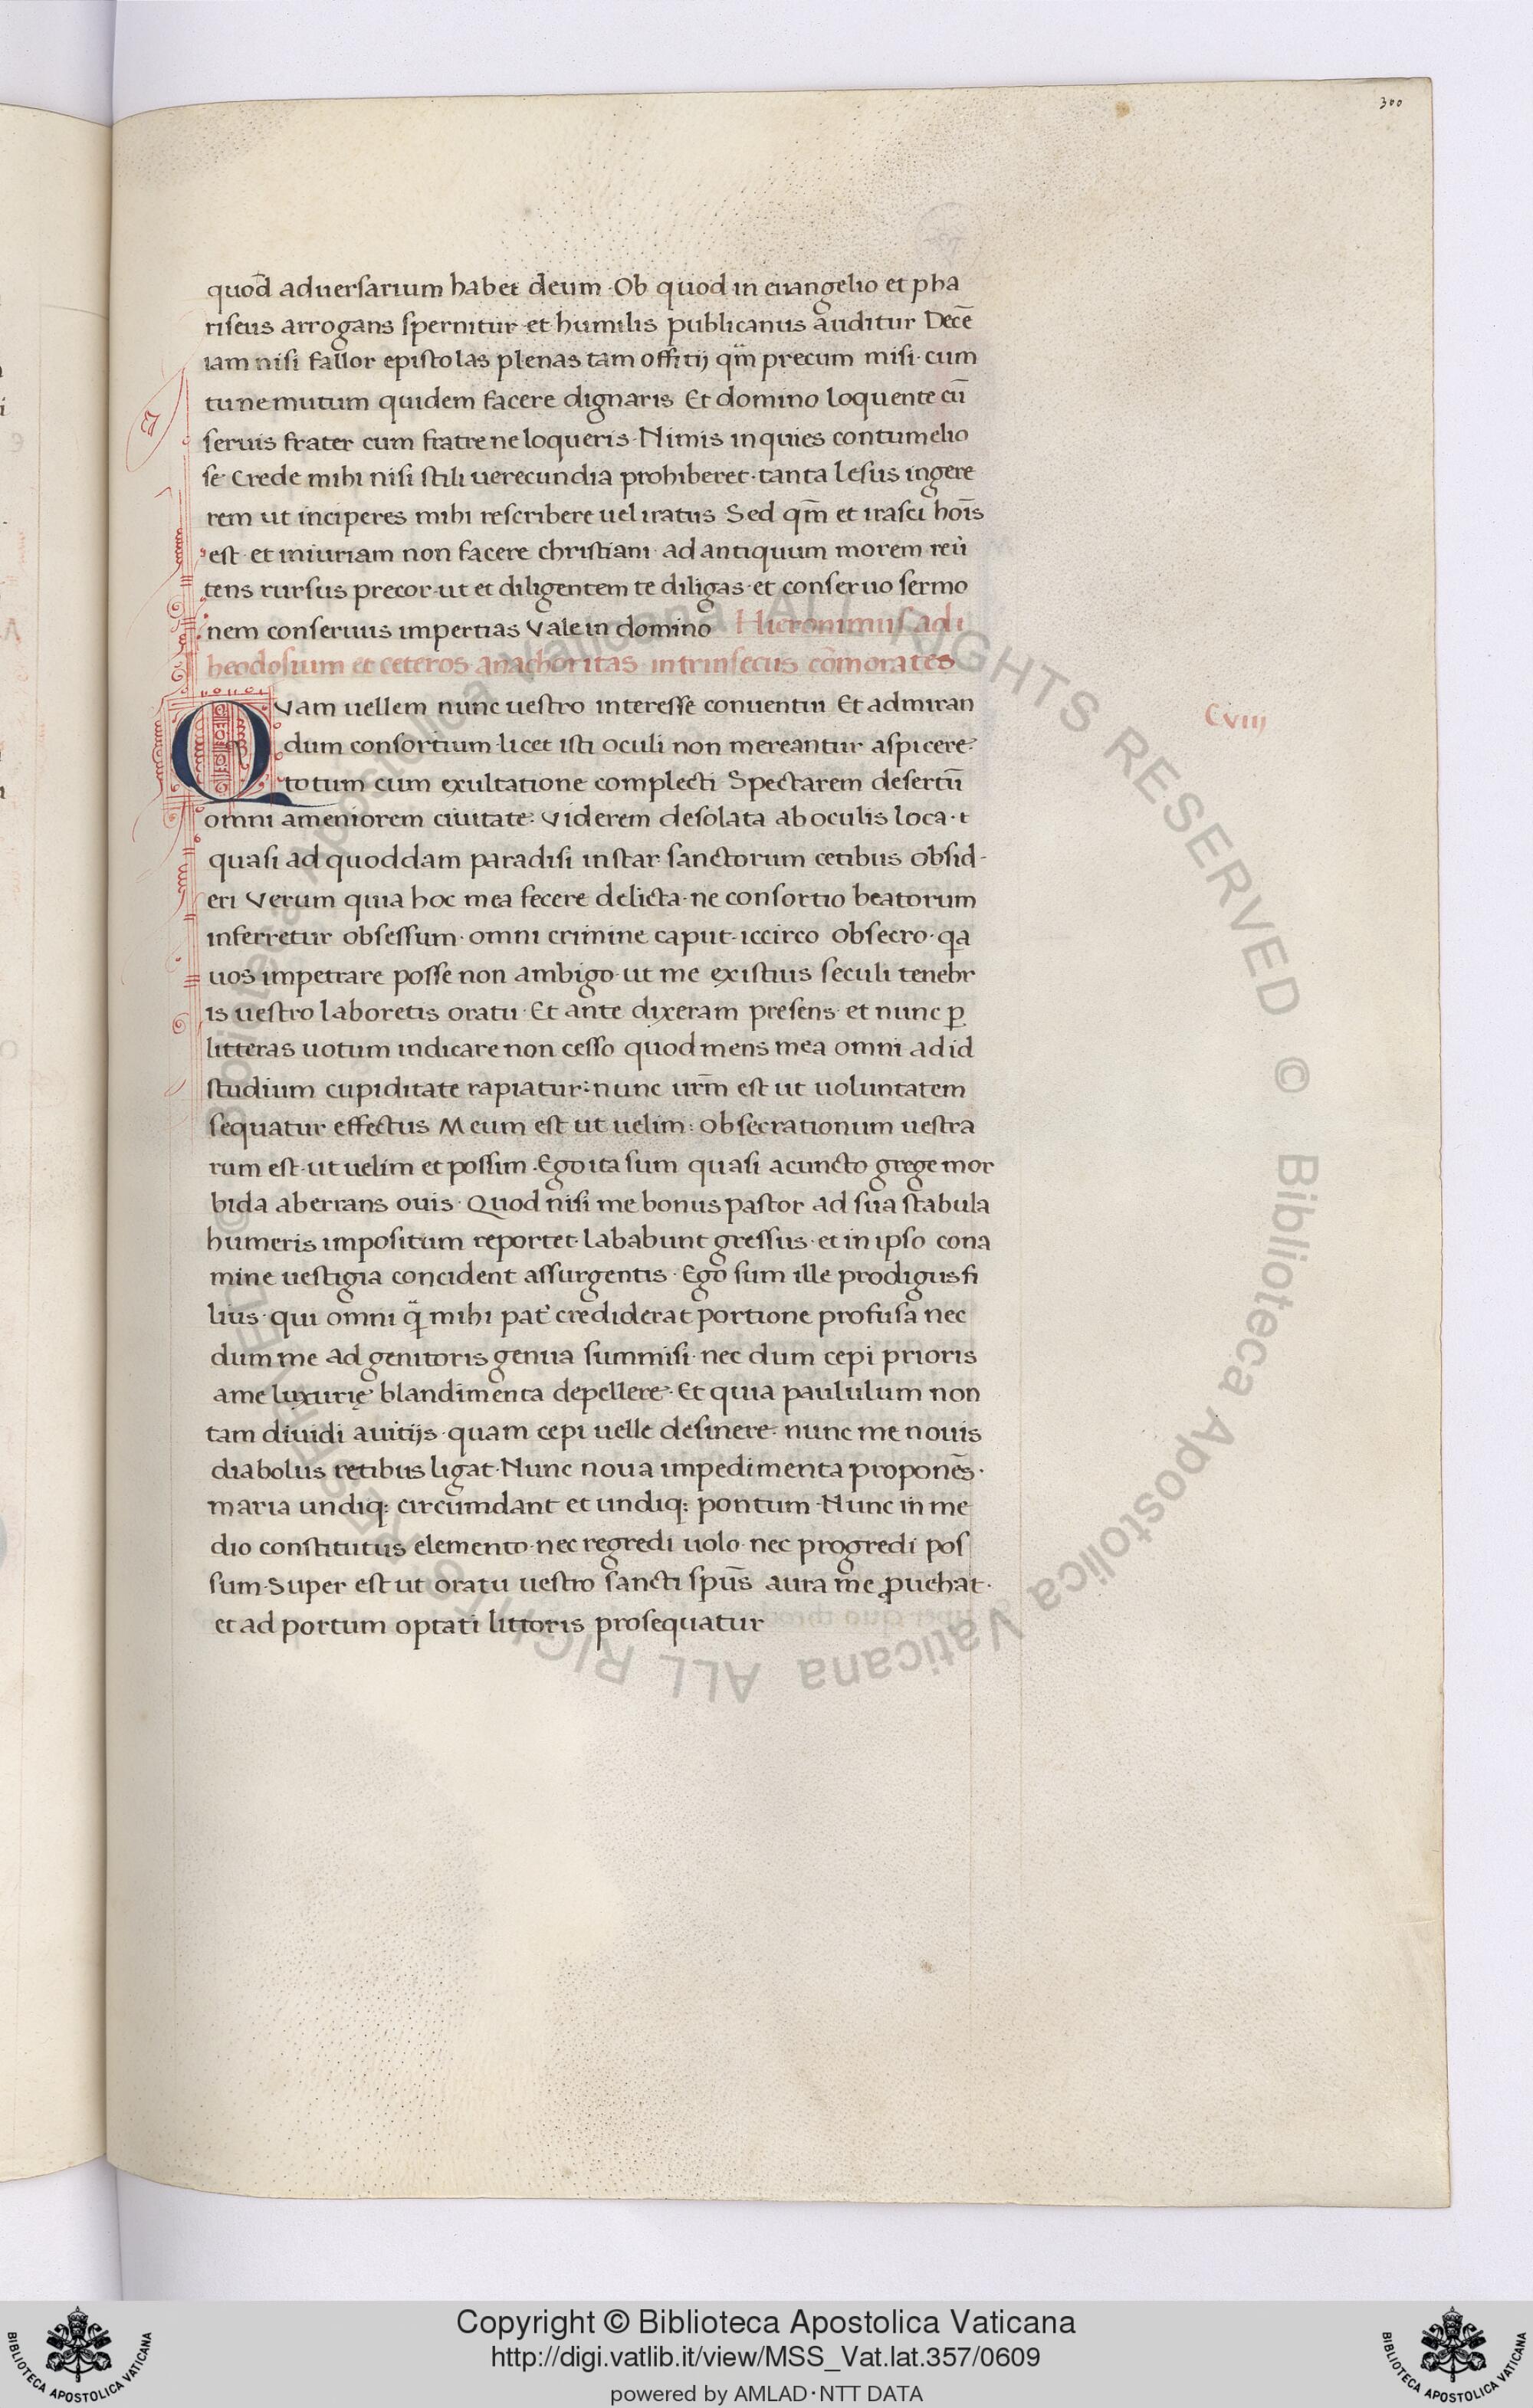 300
quod̄ aduersarium habet deum · Ob quod in euangelio et pha
riseus arrogans spernitur et humilis publicanus auditur Decē
iam nisi fallor epistolas plenas tam offitij qm̄ precum misi · cum
tu ne mutum quidem facere dignaris Et domino loquente cū
seruis frater cum fratre ne loqueris · Nimis inquies contumelio
se Crede mihi nisi stili uerecundia prohiberet · tanta lesus ingere
rem ut inciperes mihi rescribere uel iratus Sed qm̄ et irasci hoīs
est · et iniuriam non facere christiani · ad antiquum morem reũ
tens rursus precor · ut et diligentem te diligas · et conseruo sermo
nem conseruus impertias Vale in domino Hieronimus ad t
heodosium et ceteros anachoritas intrinsecus cōmorātes
QVam uellem nunc uestro interesse conuentui Et admiran
Cviij
dum consortium · licet isti oculi non mereantur aspicere ·
totum cum exultatione complecti Spectarem desertū
omni ameniorem ciuitate: Viderem desolata ab oculis loca · t
quasi ad quoddam paradisi instar sanctorum cetibus obsid-
eri Verum quia hoc mea fecere delicta · ne consortio beatorum
inferretur obsessum · omni crimine caput · iccirco obsecro · qa
uos impetrare posse non ambigo · ut me ex istius seculi tenebr
is uestro laboretis oratu · Et ante dixeram presens · et nunc ꝑ
litteras uotum indicare non cesso quod mens mea omni ad id
studium cupiditate rapiatur: nunc ur̄m est ut uoluntatem
sequatur effectus Meum est ut uelim: obsecrationum uestra
rum est · ut uelim et possim · Ego ita sum quasi a cuncto grege mor
bida aberrans ouis · Quod nisi me bonus pastor ad sua stabula
humeris impositum reportet · lababunt gressus · et in ipso cona
mine uestigia concident assurgentis · Ego sum ille prodigus fi
lius · qui omni q̄ mihi pat̉ crediderat portione profusa nec
dum me ad genitoris genua summisi · nec dum cepi prioris
a me luxurię blandimenta depellere · Et quia paululum non
tam diuidi a uitijs · quam cepi uelle desinere · nunc me nouis
diabolus retibus ligat · Nunc noua impedimenta proponēs ·
maria undiq: circumdant et undiq: pontum · Nunc in me
dio constitutus elemento · nec regredi uolo · nec progredi pos
sum · Super est ut oratu uestro sancti spūs aura me ꝓuehat ·
et ad portum optati littoris prosequatur
© Biblioteca Apostolica Vaticana ALL RIGHTS RESERVED © Biblioteca Apostolica Vaticana ALL RIGHTS RESERVED
Copyright © Biblioteca Apostolica Vaticana
http://digi.vatlib.it/view/MSS_Vat.lat.357/0609
powered by AMLAD·NTT DATA
BIBLIOTECA APOSTOLICA VATICANA
BIBLIOTECA APOSTOLICA VATICANA